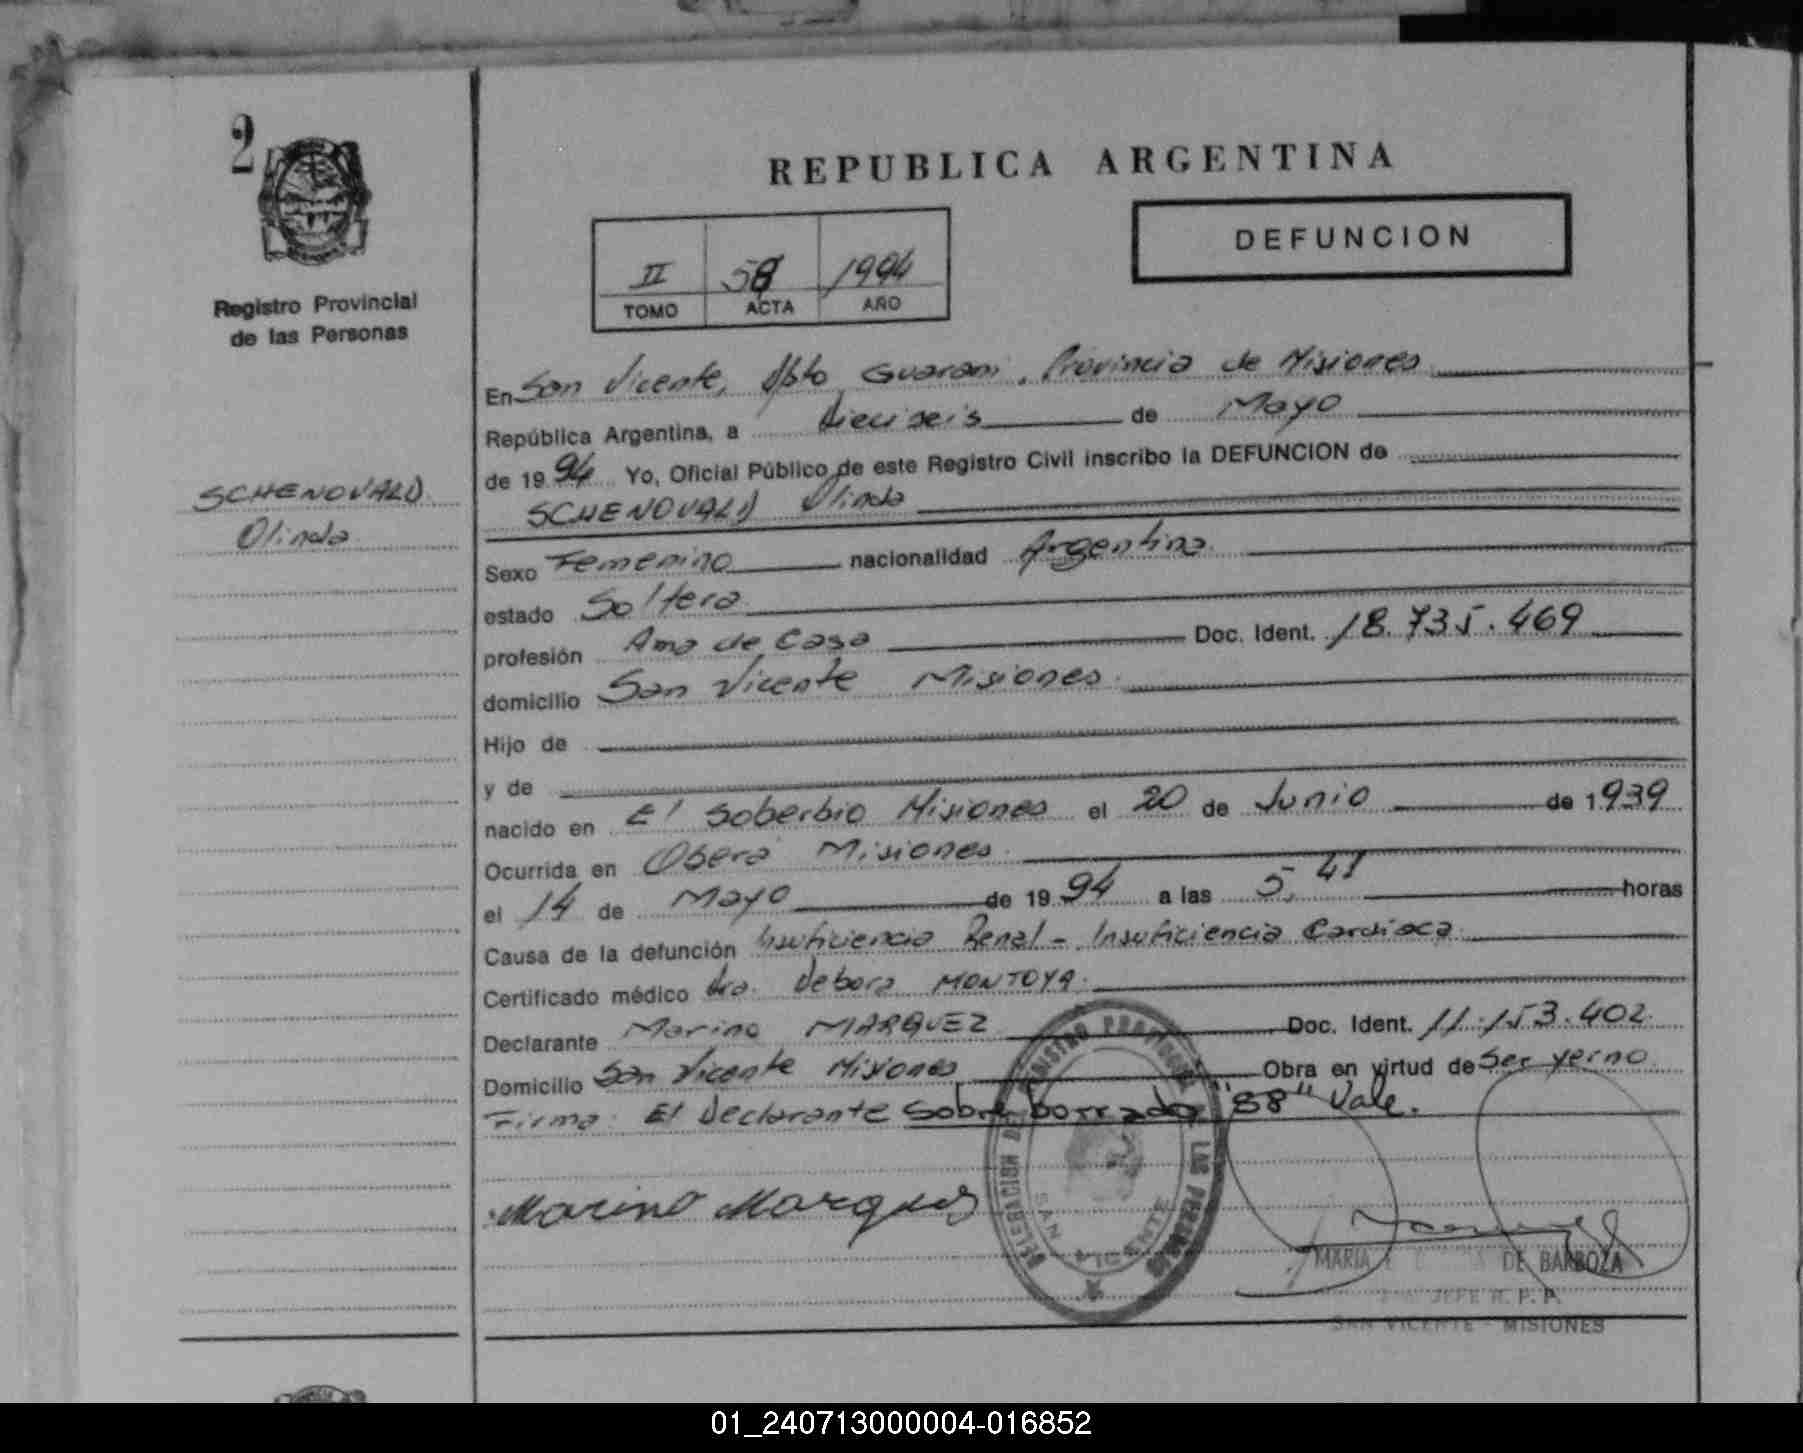 2
REPUBLICA ARGENTINA
DEFUNCION
II 58 1994
TOMO ACTA AÑO
Registro Provincial
de las Personas
SCHENOVALD
Olinda
En San Vicente, Dpto Guarani, Provincia de Misiones
República Argentina, a Dieciseis de Mayo
de 1994 Yo, Oficial Público de este Registro Civil inscribo la DEFUNCION de
SCHENOVALD Olinda
Sexo Femenino nacionalidad Argentina
estado Soltera
profesión Ama de Casa Doc. Ident. 18.735.469
domicilio San Vicente Misiones
Hijo de
y de
nacido en El Soberbio Misiones el 20 de Junio de 1939
Ocurrida en Oberá Misiones
el 14 de Mayo de 1994 a las 5,41 horas
Causa de la defunción Insuficiencia Renal - Insuficiencia Cardiaca
Certificado médico Dra. Debora MONTOYA
Declarante Marino MARQUEZ Doc. Ident. 11.153.402
Domicilio San Vicente Misiones Obra en virtud de Ser yerno
Firma: El Declarante Sobre borrado "58" Vale.
DELEGACION DEL REGISTRO PROVINCIAL DE LAS PERSONAS
SAN VICENTE
Marino Marquez
MARIA DE BARBOZA
JEFE R. P. P.
SAN VICENTE - MISIONES
01_240713000004-016852